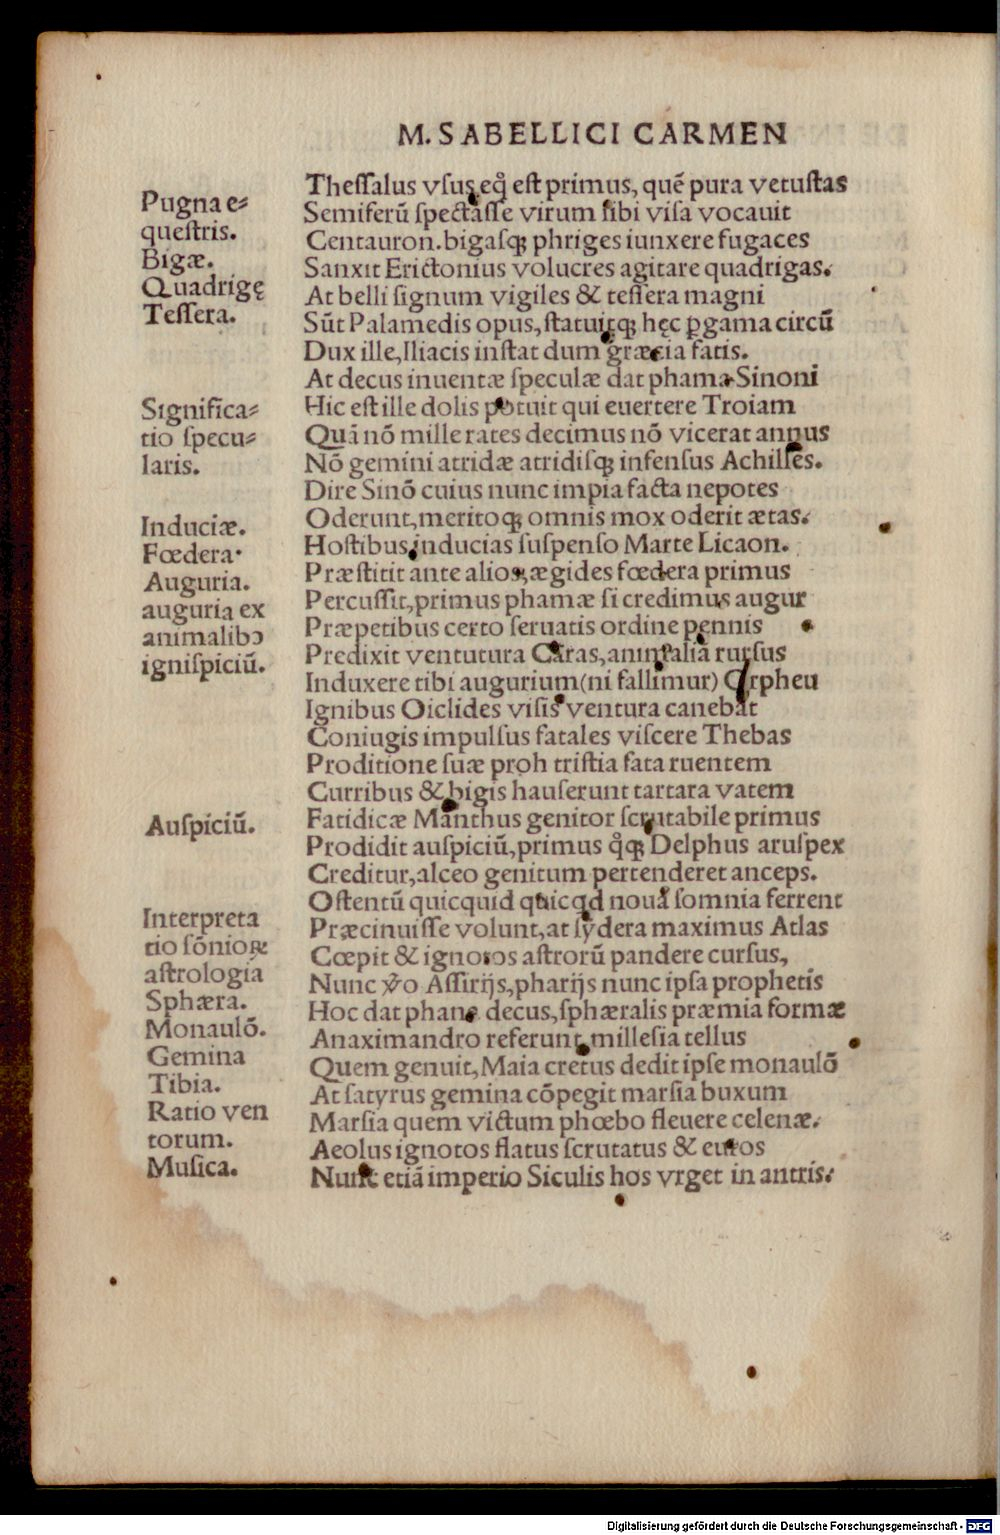 M. SABELLICI CARMEN
Pugna e⸗
queſtris.
Bigæ.
Quadrigę
Teſſera.
Significa⸗
tio ſpecu⸗
laris.
Induciæ.
Fœdera.
Auguria.
auguria ex
animalibꝰ
igniſpiciū.
Auſpiciū.
Interpreta
tio ſōnioꝝ
aſtrologia
Sphæra.
Monaulō.
Gemina
Tibia.
Ratio ven
torum.
Muſica.
Theſſalus vſus eq̊ eſt primus, quē pura vetuſtas
Semiferū ſpectaſſe virum ſibi viſa vocauit
Centauron. bigaſqꝫ phriges iunxere fugaces
Sanxit Erictonius volucres agitare quadrigas.
At belli ſignum vigiles & teſſera magni
Sūt Palamedis opus, ſtatuitqꝫ hęc ꝑgama circū
Dux ille, Iliacis inſtat dum græcia fatis.
At decus inuentæ ſpeculæ dat phama Sinoni
Hic eſt ille dolis potuit qui euertere Troiam
Quā nō mille rates decimus nō vicerat annus
Nō gemini atridæ atridiſqꝫ infenſus Achilles.
Dire Sinō cuius nunc impia facta nepotes
Oderunt, meritoqꝫ omnis mox oderit ætas.
Hoſtibus inducias ſuſpenſo Marte Licaon.
Præſtitit ante alios, ægides fœdera primus
Percuſſit, primus phamæ ſi credimus augur
Præpetibus certo ſeruatis ordine pennis
Predixit ventutura Caras, animalia rurſus
Induxere tibi augurium (ni fallimur) Orpheu
Ignibus Oiclides viſis ventura canebat
Coniugis impulſus fatales viſcere Thebas
Proditione ſuæ proh triſtia fata ruentem
Curribus & bigis hauſerunt tartara vatem
Fatidicæ Manthus genitor ſcrutabile primus
Prodidit auſpiciū, primus q̊qꝫ Delphus aruſpex
Creditur, alceo genitum pertenderet anceps.
Oſtentū quicquid quicqd noua ſomnia ferrent
Præcinuiſſe volunt, at ſydera maximus Atlas
Cœpit & ignotos aſtrorū pandere curſus,
Nunc v̊o Aſſirijs, pharijs nunc ipſa prophetis
Hoc dat phane decus, ſphæralis præmia formæ
Anaximandro referunt, milleſia tellus
Quem genuit, Maia cretus dedit ipſe monaulō
At ſatyrus gemina cōpegit marſia buxum
Marſia quem victum phœbo fleuere celenæ.
Aeolus ignotos flatus ſcrutatus & euros
Nunc etiā imperio Siculis hos vrget in antris.
Digitalisierung gefördert durch die Deutsche Forschungsgemeinschaft - DFG